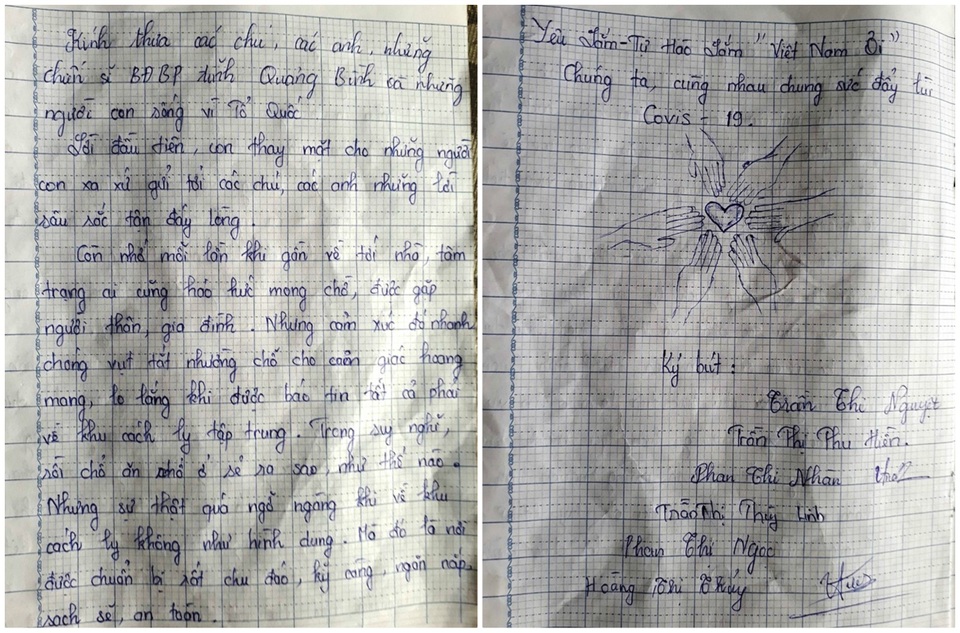 Kính thưa các chú, các anh, những
chiến sĩ BĐBP tỉnh Quảng Bình và những
người con sống vì Tổ Quốc.
Lời đầu tiên, con thay mặt cho những người
con xa xứ gửi tới các chú, các anh những lời
sâu sắc tận đáy lòng.
Còn nhớ mỗi lần khi gần về tới nhà, tâm
trạng ai cũng háo hức mong chờ, được gặp
người thân, gia đình. Nhưng cảm xúc đó nhanh
chóng vụt tắt nhường chỗ cho cảm giác hoang
mang, lo lắng khi được báo tin tất cả phải
về khu cách ly tập trung. Trong suy nghĩ,
rồi chỗ ăn chỗ ở sẽ ra sao, như thế nào.
Nhưng sự thật quá ngỡ ngàng khi về khu
cách ly không như hình dung. Mà đó là nơi
được chuẩn bị rất chu đáo, kỹ càng, ngăn nắp,
sạch sẽ, an toàn.
Yêu Lắm - Tự Hào Lắm "Việt Nam Ơi"
Chúng ta, cùng nhau chung sức đẩy lùi
Covis - 19.
Ký bút:
Trần Thị Nguyệt
Trần Thị Thu Hiền.
Phan Thị Nhàn
Trần Thị Thùy Linh
Phan Thị Ngọc
Hoàng Thị Thúy